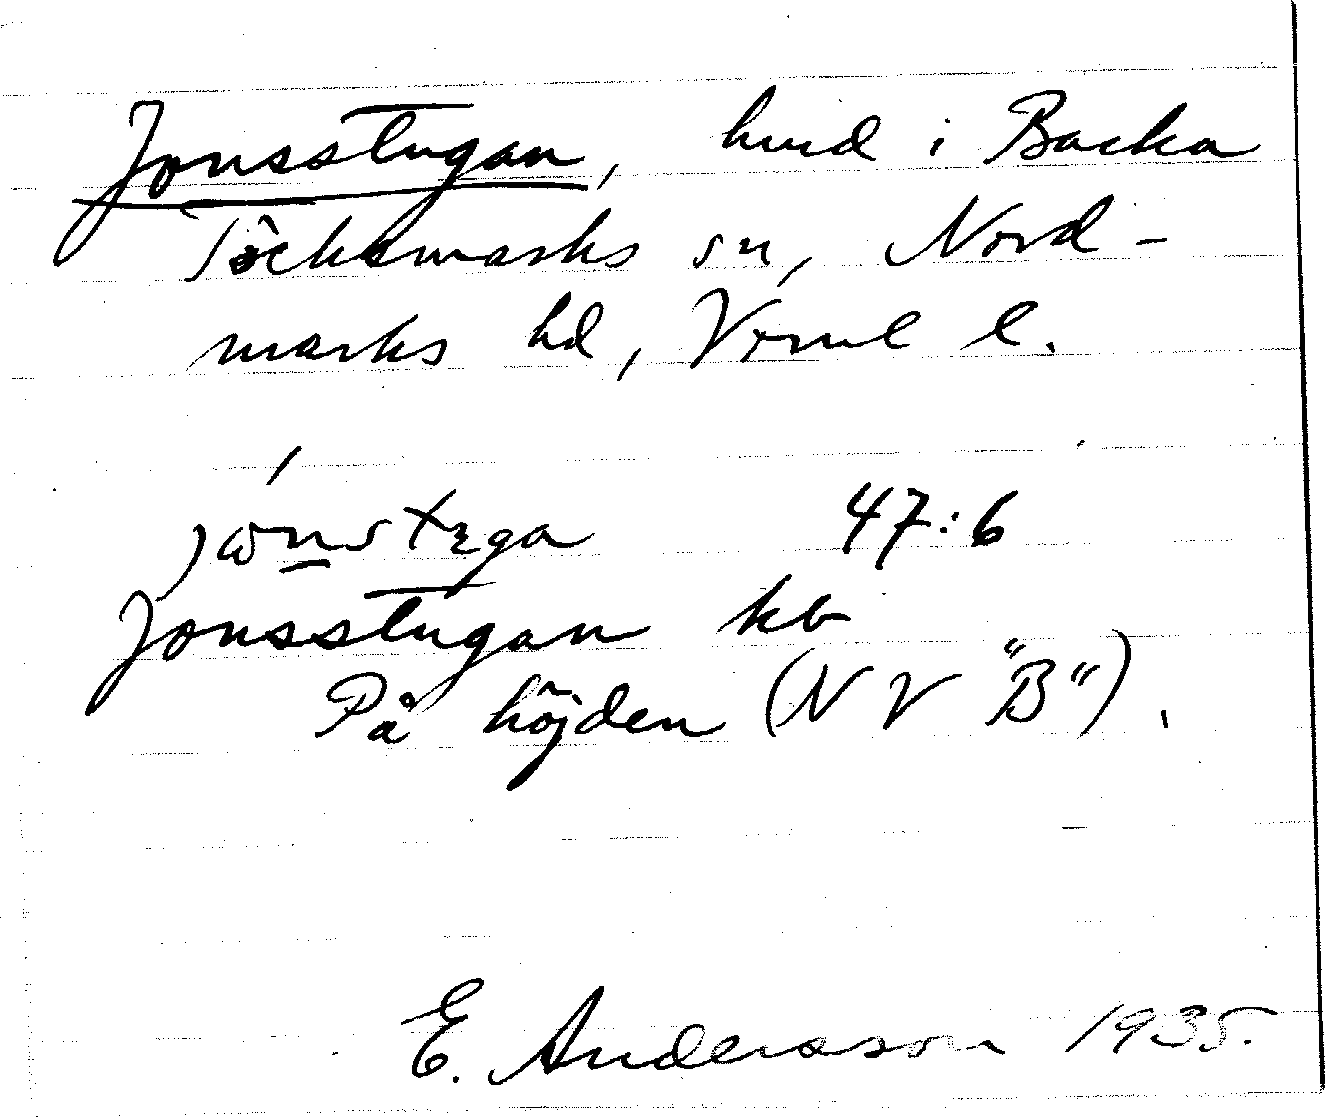 Jonsstugan, hmd i Backa
Töcksmarks sn, Nord-
marks hd, Verml l.
47:6
Jonsstugan kb
På höjden (NV "B").
E. Andersson 1935.